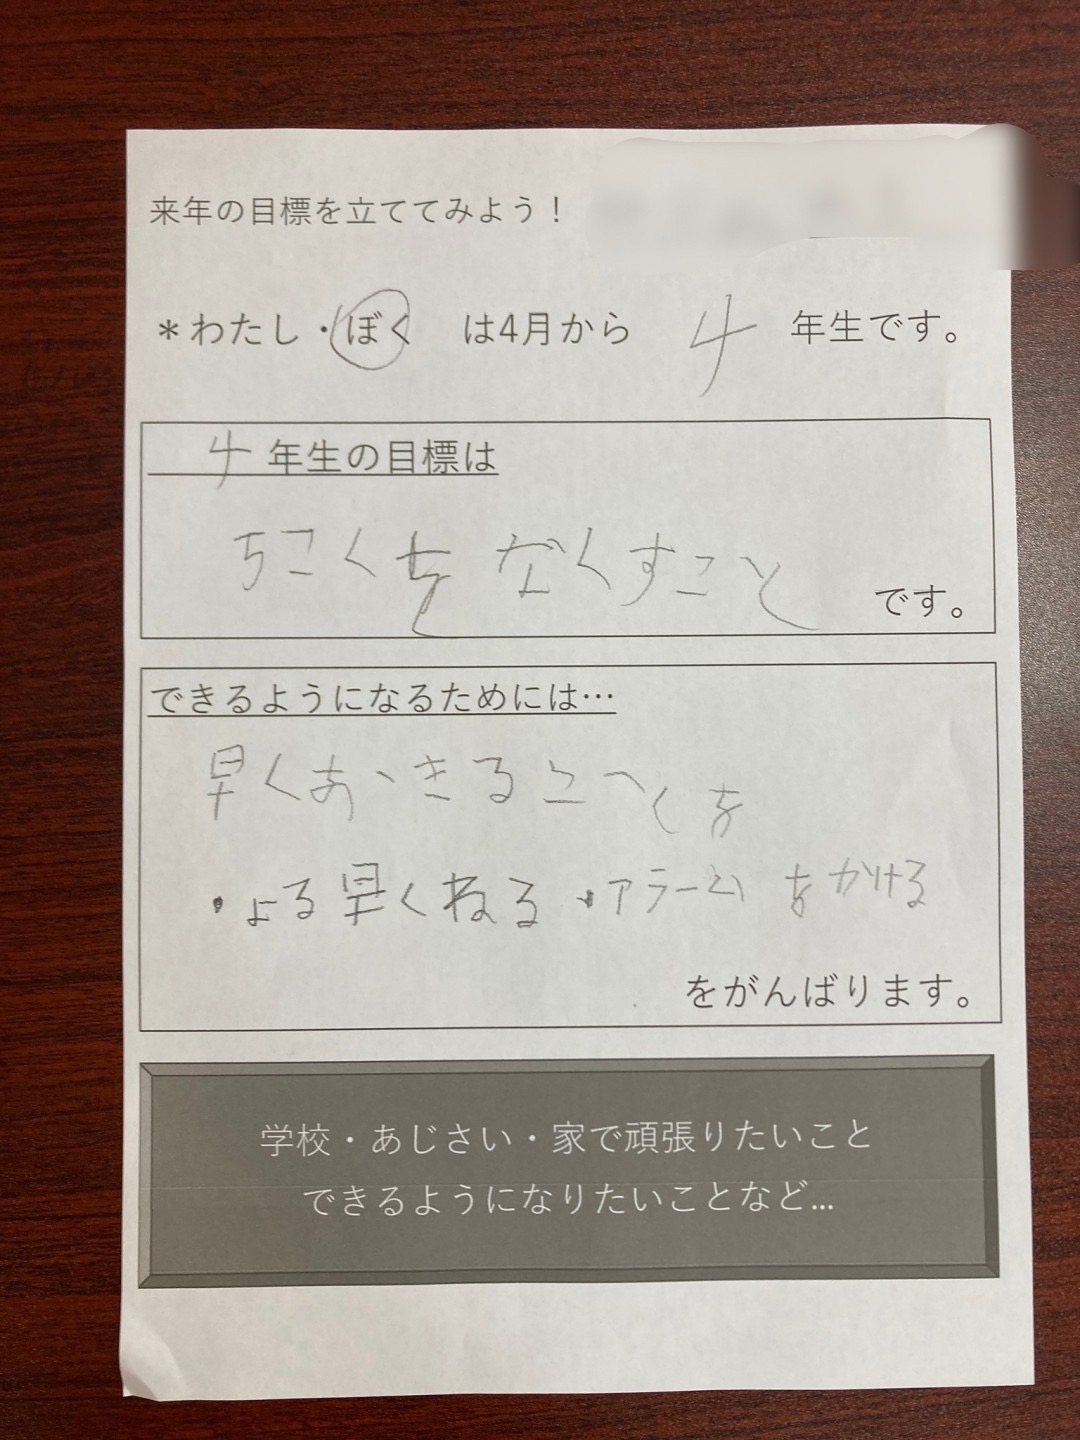 来年の目標を立ててみよう！
＊わたし・ぼく は4月から 4 年生です。
4 年生の目標は
ちこくをなくすこと
です。
できるようになるためには…
早くおきることを
・よる早くねる ・アラームをかける
をがんばります。
学校・あじさい・家で頑張りたいこと
できるようになりたいことなど…